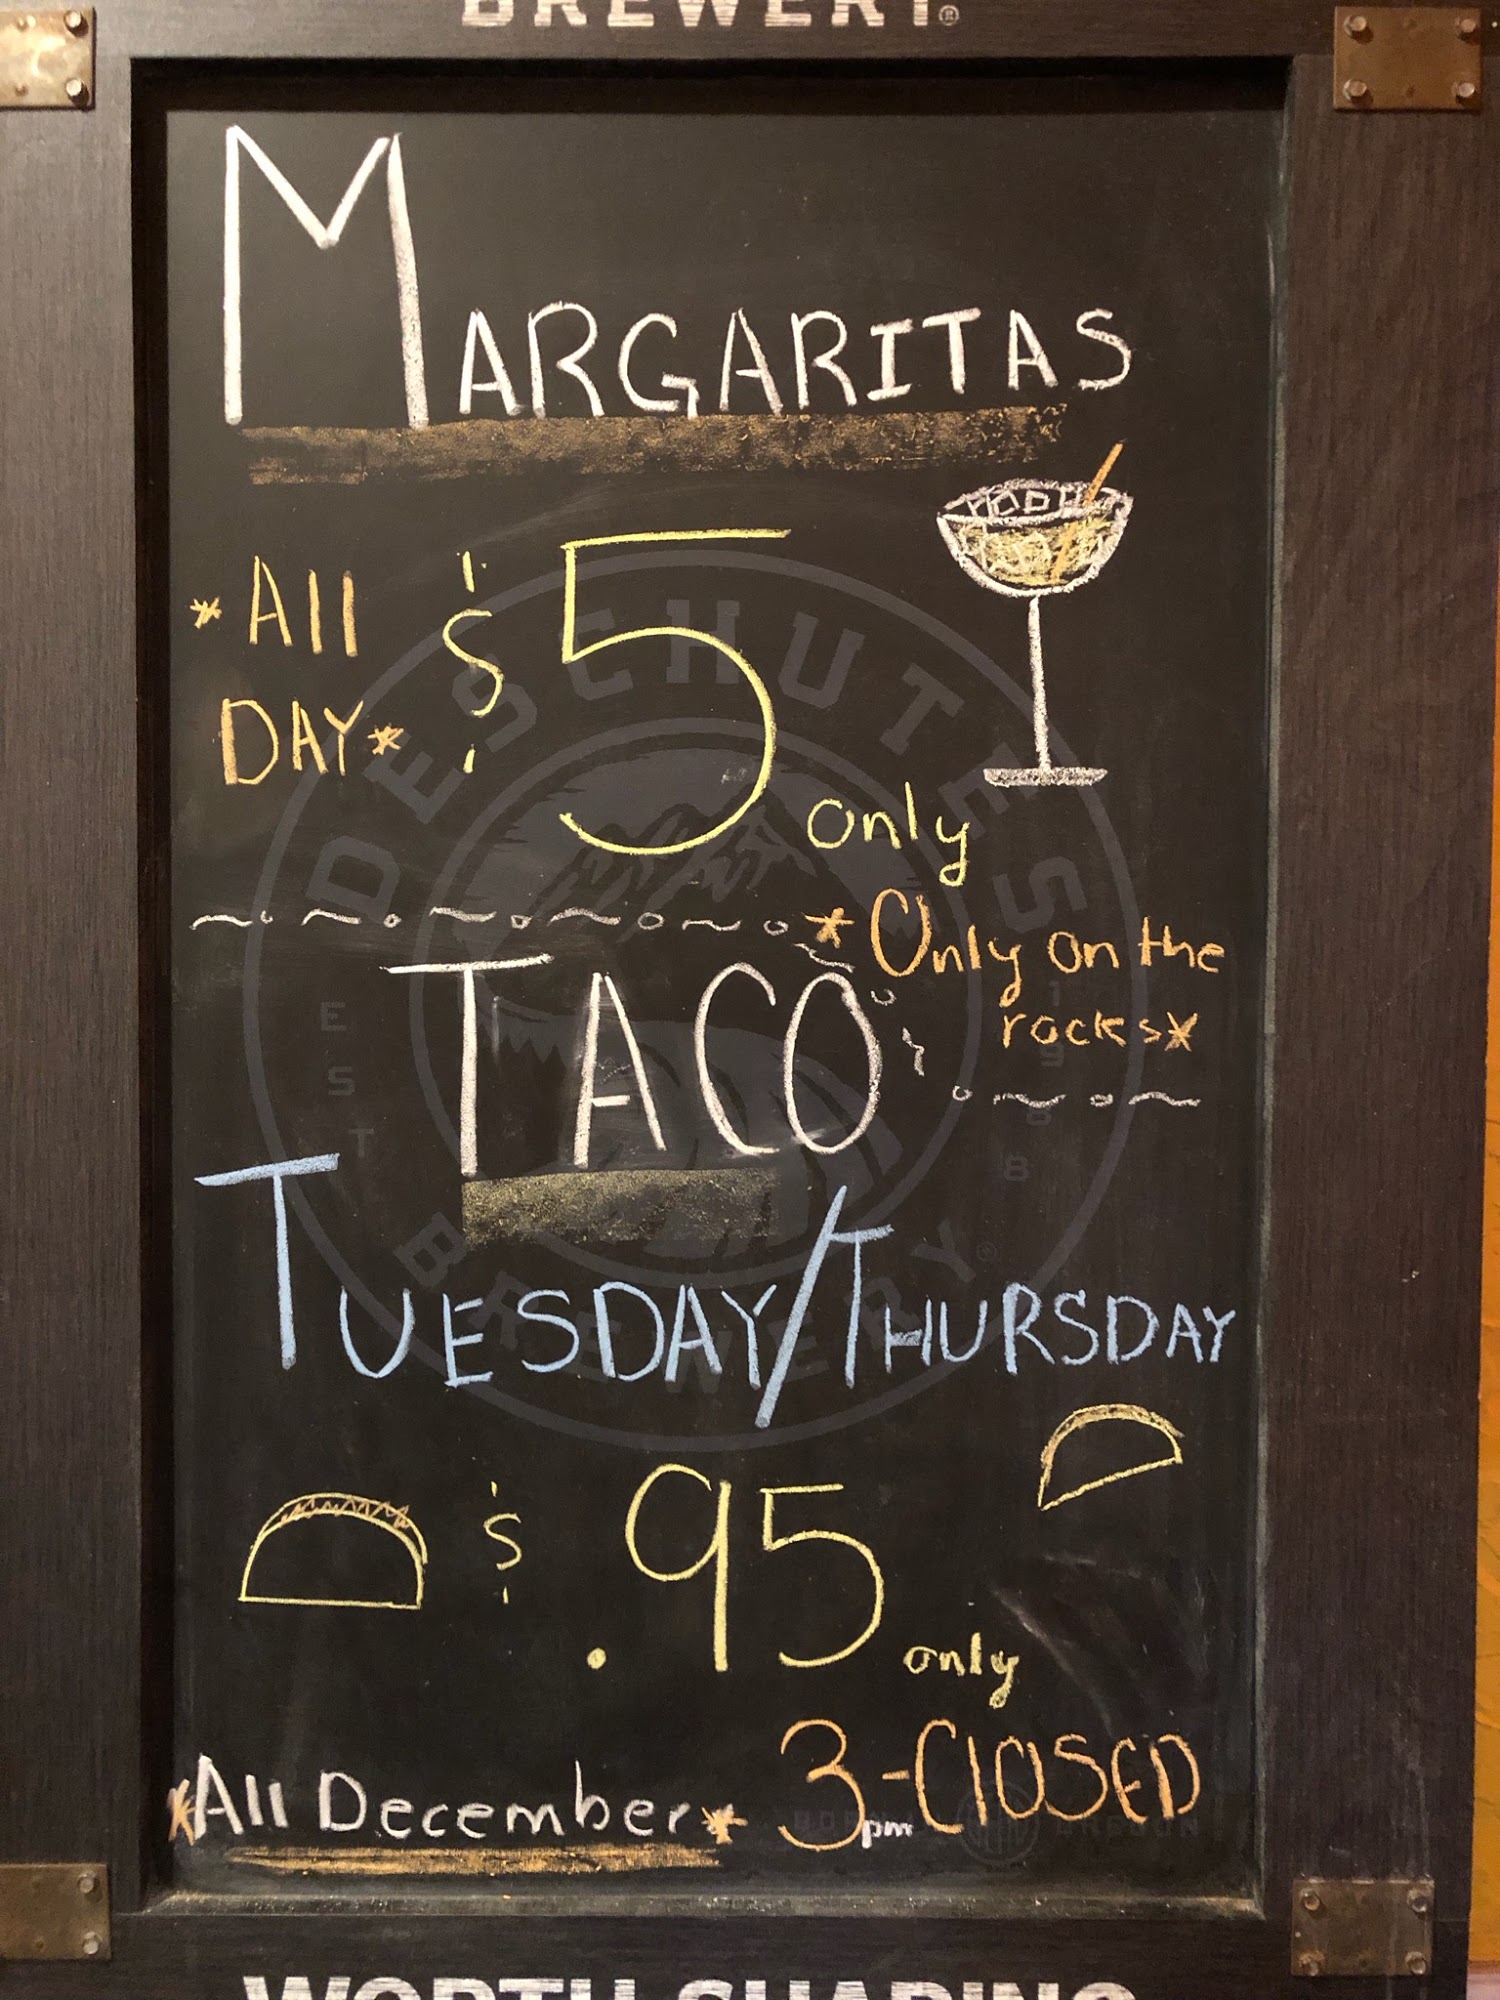 BREWERY®
MARGARITAS
*All
DAY*
$5 only
*Only on the
rocks*
TACO
TUESDAY/THURSDAY
$.95 only
*All December*
3pm-ClOSED
DESCHUTES
EST 1988
BREWERY®
WORTH SHARING